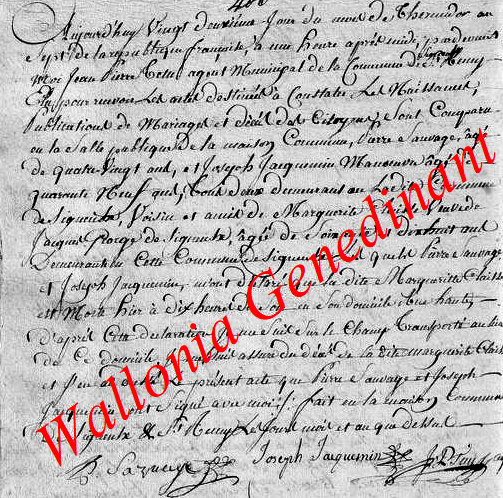 Aujourd'huy Vingt deuxieme Jour du mois de Thermidor an
Sept de la republique française, a une heure après midi, pardevant
moi Jean Pierre agent Municipal de la Commune de St Remy
Elu pour recevoir Les actes destinés a Constater Les Naissances,
Publications de Mariages et décès des Citoyens, Sont Comparu
en la Salle publique de la maison Commune, Pierre Sauvage, agé
de quatre Vingt ans, et Joseph Jacquemin Manoeuvre agé de
quarante Neuf ans, tous deux demeurant au dite Commune
de Signeulx, Voisin et amis de Marguerite Veuve de
Jacques de Signeulx, agée de Soixante et dixhuit ans
Demeurante en Cette Commune de Signeulx les quels Pierre Sauvage
et Joseph Jacquemin, m'ont déclaré que la dite Marguerite
est Morte hier a dix heures du Soir en Son domicile rue haute,
d'après Cette déclaration je me Suis Sur le Champ Transporté au lieu
de Ce domicile, me Suis assuré du décès de la dite marguerite
et J'en ai dressé Le présent acte que Pierre Sauvage et Joseph
Jacquemin ont Signé avec moi. fait en la maison Commune
de Signeulx & St Remy Les Jour mois et an que dessus
Joseph Jacquemin
Wallonia Genedinant